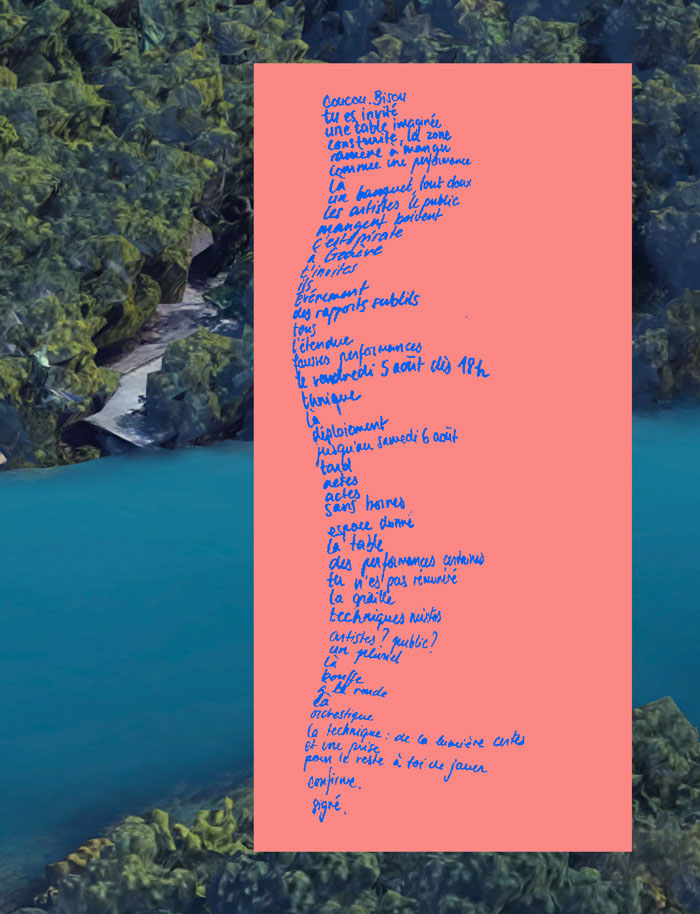 Coucou. Bisou
tu es invité
une table imaginée
construite, la zone
ramène à manger
comme une performance
là
un banquet, tout doux
les artistes le public
mangent boivent
c'est pirate
à Genève
t'invites
ils
événement
des rapports subtils
tous
l'étendue
fausses performances
le vendredi 5 août dès 18h
là
déploiement
jusqu'au samedi 6 août
tard
actes
actes
sans bornes
espace donné
la table
des performances certaines
tu n'es pas rémunéré
la graille
techniques mixtes
artistes? public?
un pluriel
là
bouffe
à la ronde
là
orchestique
la technique: de la lumière certes
et une prise
pour le reste à toi de jouer
confirme.
signé.